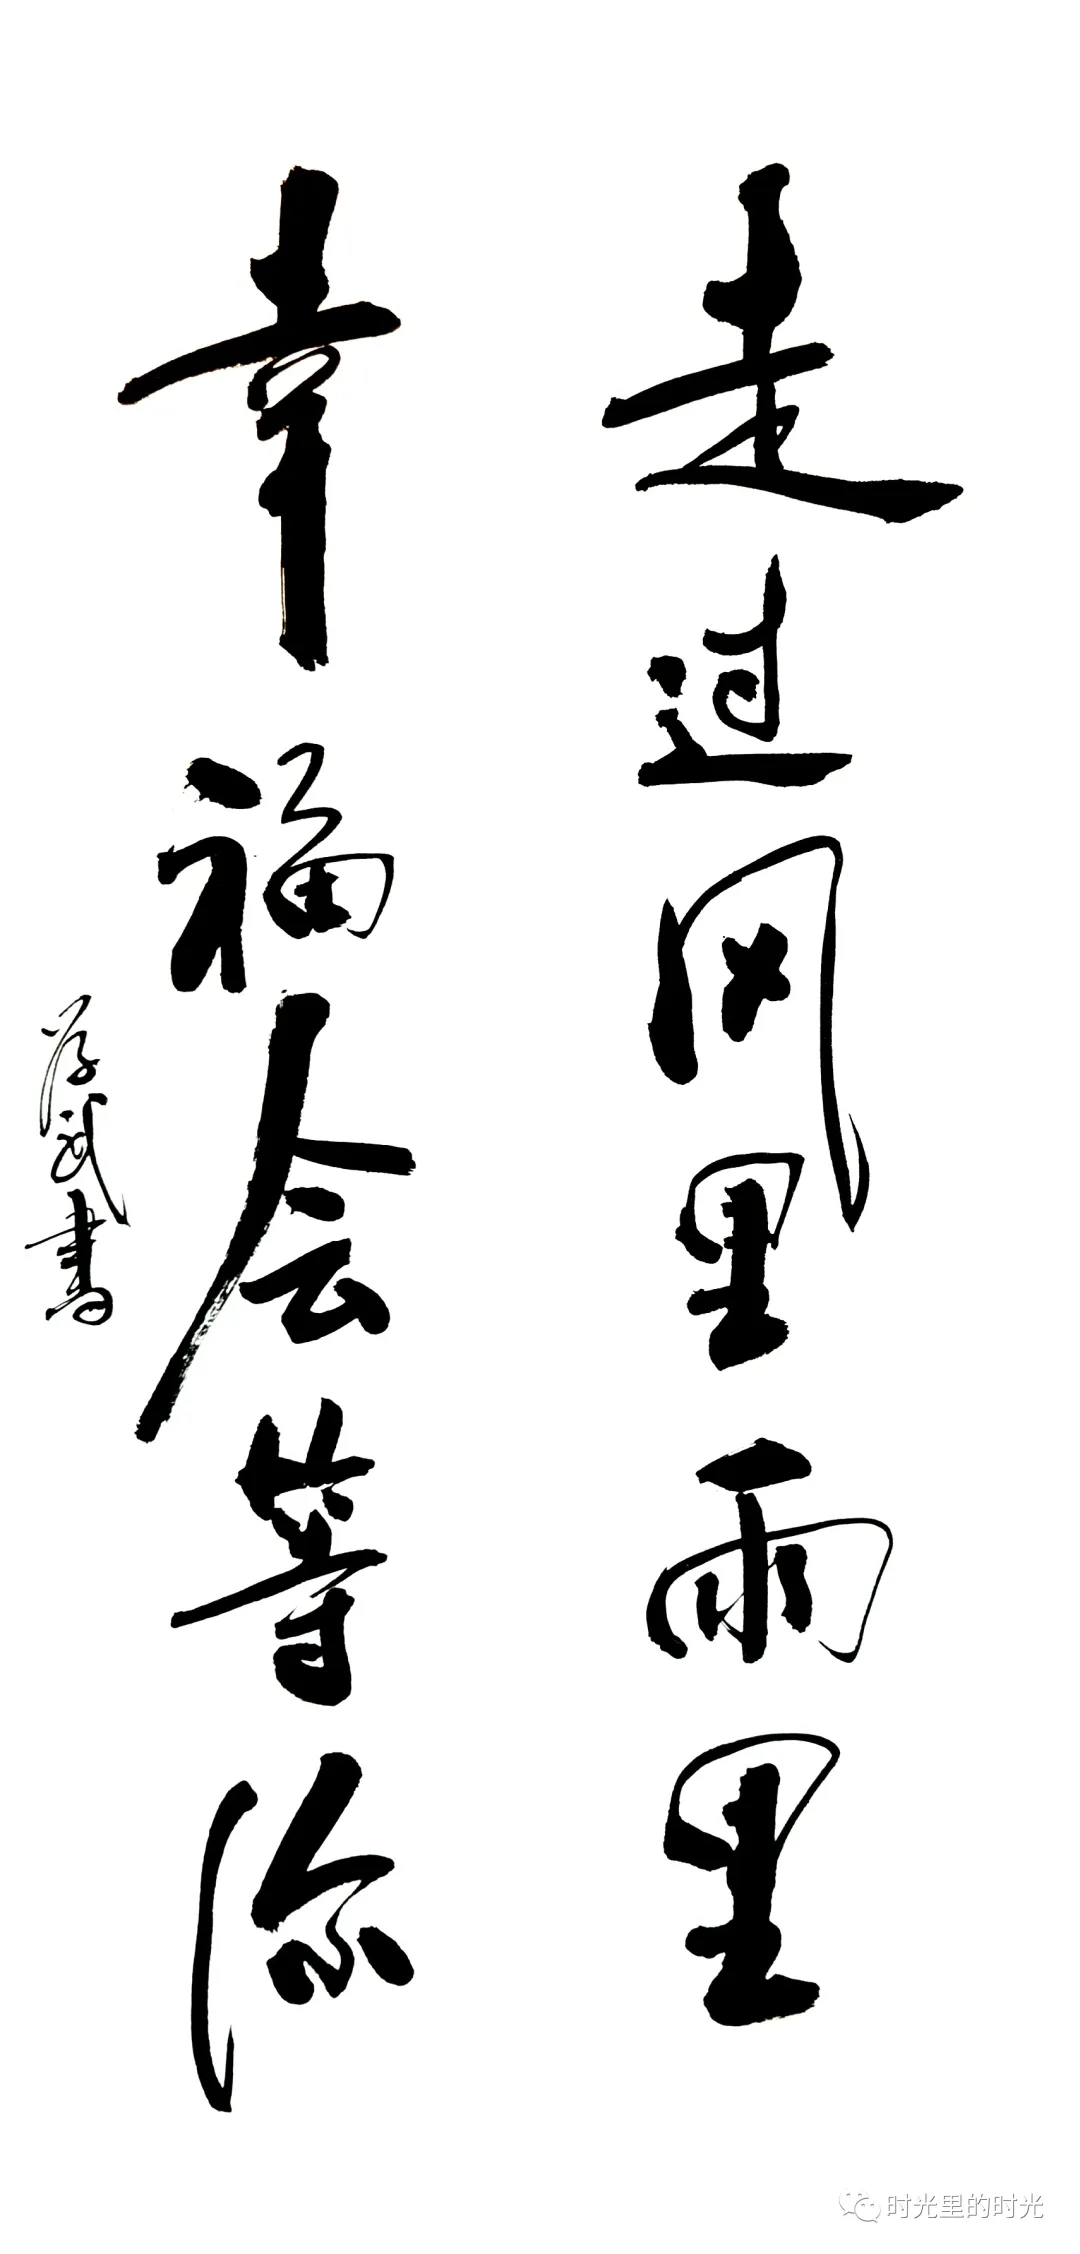 走过风里雨里
幸福会等你
学武书
时光里的时光